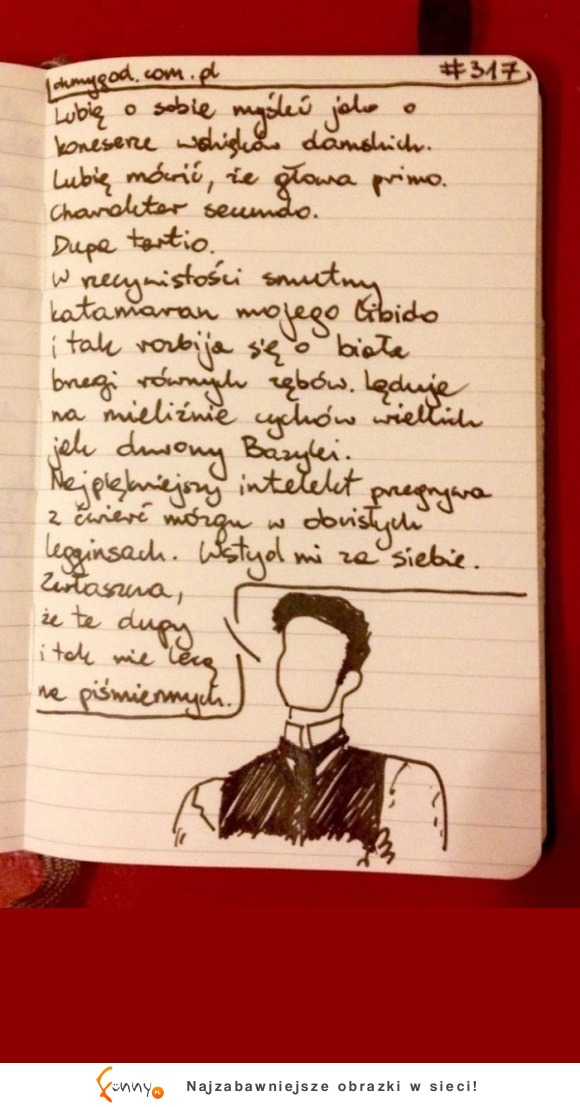 ohmygod.com.pl #317
Lubię o sobie myśleć jako o
koneserze wdzięków damskich.
Lubię mówić, że głowa primo.
Charakter secundo.
Dupa tertio.
W rzeczywistości smutny
katamaran mojego libido
i tak rozbija się o białe
brzegi równych zębów. Ląduje
na mieliźnie cychów wielkich
jak dzwony Bazylei.
Najpiękniejszy intelekt przegrywa
z ćwierć mózgu w obcisłych
legginsach. Wstyd mi za siebie.
Zwłaszcza,
że te dupy
i tak nie lecą
na piśmiennych.
funny.pl Najzabawniejsze obrazki w sieci!